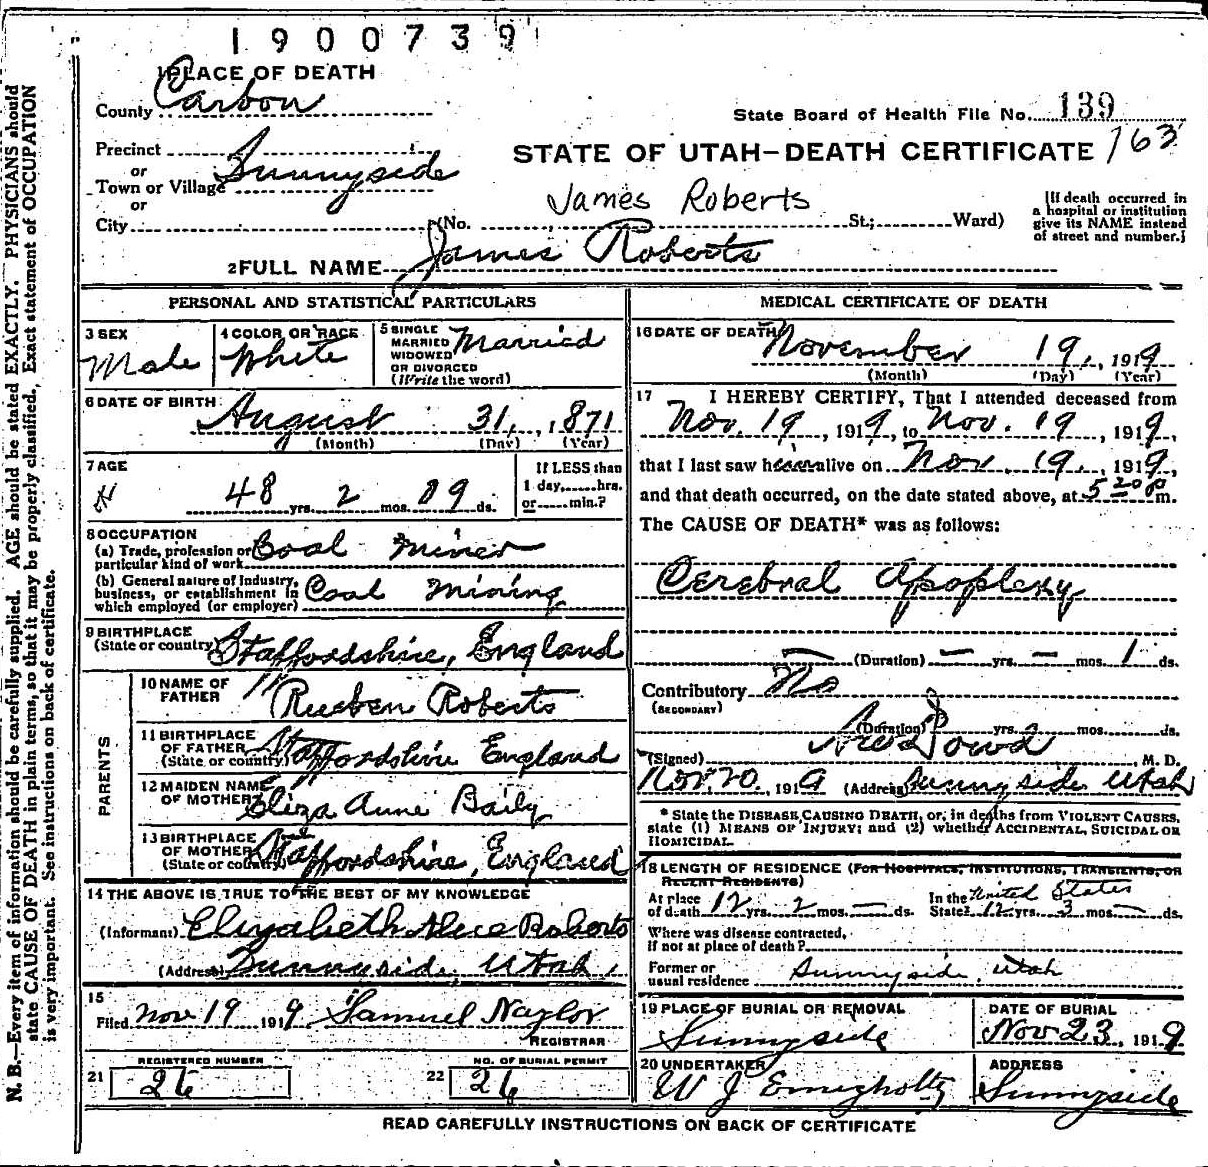 1900739
1 PLACE OF DEATH
County Carbon
State Board of Health File No. 139
Precinct
or
Town or Village Sunnyside
or
City
STATE OF UTAH-DEATH CERTIFICATE 763
James Roberts
(No. St.; Ward)
[If death occurred in
a hospital or institution
give its NAME instead
of street and number.]
2 FULL NAME James Roberts
PERSONAL AND STATISTICAL PARTICULARS
3 SEX
Male
4 COLOR OR RACE
White
5 SINGLE
MARRIED
WIDOWED
OR DIVORCED
(Write the word)
Married
6 DATE OF BIRTH
August 31, 1871
(Month) (Day) (Year)
7 AGE
48 yrs. 2 mos. 19 ds.
If LESS than
1 day, hrs.
or min.?
8 OCCUPATION
(a) Trade, profession or
particular kind of work Coal Miner
(b) General nature of Industry,
business, or establishment in
which employed (or employer) Coal Mining
9 BIRTHPLACE
(State or country) Staffordshire, England
PARENTS
10 NAME OF
FATHER Rueben Roberts
11 BIRTHPLACE
OF FATHER
(State or country) Staffordshire England
12 MAIDEN NAME
OF MOTHER Eliza Anne Baily
13 BIRTHPLACE
OF MOTHER
(State or country) Staffordshire, England
14 THE ABOVE IS TRUE TO THE BEST OF MY KNOWLEDGE
(Informant) Elizabeth Alice Roberts
(Address) Sunnyside, Utah,
15
Filed Nov 19 1919 Samuel Naylor
REGISTRAR
REGISTERED NUMBER
21 26
NO. OF BURIAL PERMIT
22 26
MEDICAL CERTIFICATE OF DEATH
16 DATE OF DEATH November 19, 1919
(Month) (Day) (Year)
17 I HEREBY CERTIFY, That I attended deceased from
Nov. 19, 1919, to Nov. 19, 1919,
that I last saw him alive on Nov. 19, 1919,
and that death occurred, on the date stated above, at 5 20 p m.
The CAUSE OF DEATH* was as follows:
Cerebral Apoplexy
(Duration) — yrs. — mos. 1 ds.
Contributory No
(SECONDARY)
(Duration) yrs. mos. ds.
(Signed) Dowd, M. D.
Nov. 20, 1919 (Address) Sunnyside Utah
* State the DISEASE CAUSING DEATH, or, in deaths from VIOLENT CAUSES,
state (1) MEANS OF INJURY; and (2) whether ACCIDENTAL, SUICIDAL OR
HOMICIDAL.
18 LENGTH OF RESIDENCE (FOR HOSPITALS, INSTITUTIONS, TRANSIENTS, OR
RECENT RESIDENTS)
At place
of death 12 yrs. 2 mos. — ds.
In the United States
State 12 yrs. 3 mos. — ds.
Where was disease contracted,
if not at place of death?
Former or
usual residence Sunnyside, Utah
19 PLACE OF BURIAL OR REMOVAL
Sunnyside
DATE OF BURIAL
Nov 23, 1919
20 UNDERTAKER
W J
ADDRESS
Sunnyside
READ CAREFULLY INSTRUCTIONS ON BACK OF CERTIFICATE
N. B.—Every item of information should be carefully supplied. AGE should be stated EXACTLY. PHYSICIANS should
state CAUSE OF DEATH in plain terms, so that it may be properly classified. Exact statement of OCCUPATION
is very important. See instructions on back of certificate.